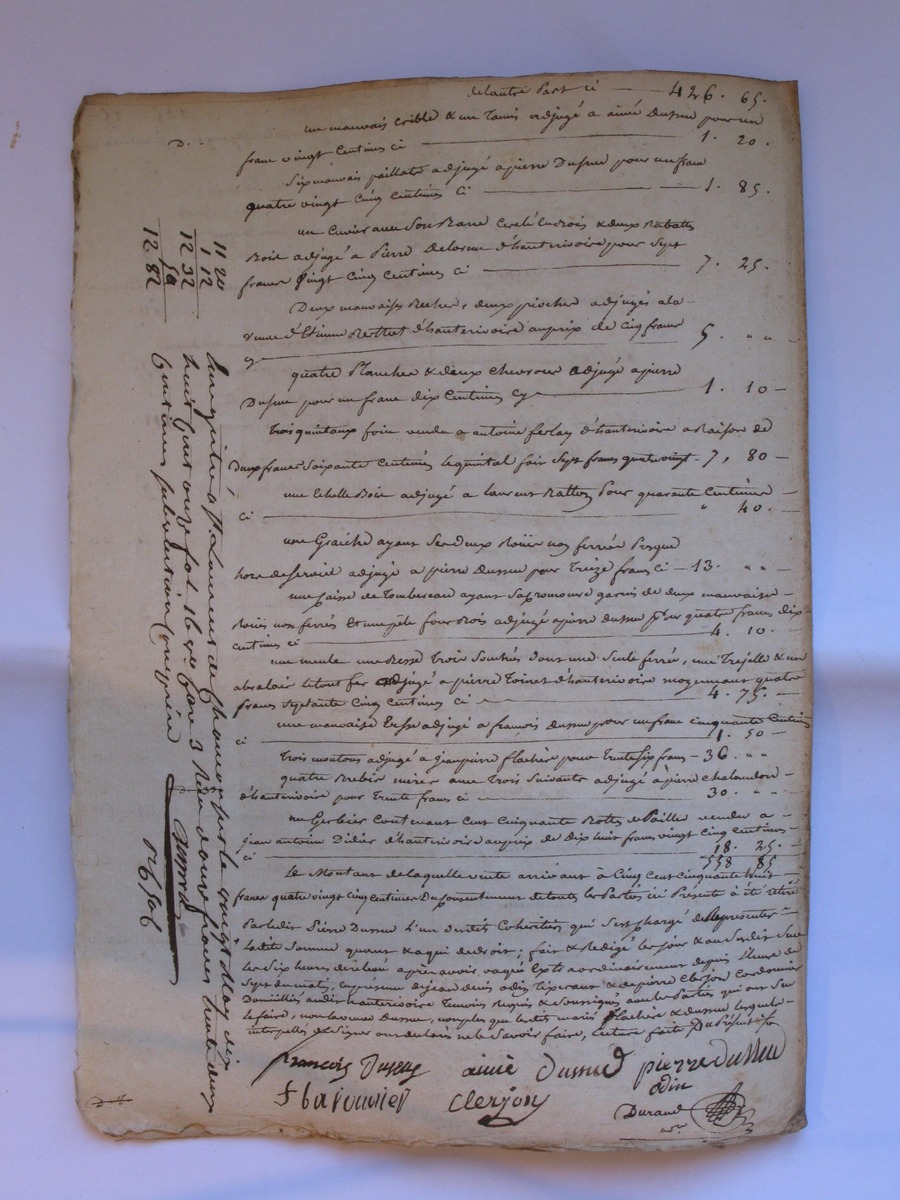 de lautre Part ci — 426. 65.
un mauvais crible & un Tamis adjugé a aimé Dussud pour un
franc vingt Centimes ci — 1. 20.
Six mauvais paillats adjugé a pierre Dussud pour un franc
quatre vingt Cinq Centimes Ci — 1. 85.
un Cuvier avec Son Banc Cerclé en Bois & deux Rabatts
Bois adjugé a Pierre Delorme d'hauterivoire pour Sept
francs Vingt Cinq Centimes Ci — 7. 25.
Deux mauvaises Beches, deux pioches adjugés a la
Veuve d'Etienne Berthet d'hauterivoire au prix de Cinq francs
cy — 5. " "
quatre Planches & deux chevrons adjugé a pierre
Dussud pour un franc dix Centimes cy — 1. 10 —
Trois quintaux foin vendu a antoine ferlay d'hauterivoire a Raison de
Deux francs Soixante Centimes le quintal fait Sept francs quatre vingt — 7, 80 —
une Echelle Bois adjugé a laurent Ratton Pour quarante Centimes —
Ci — " 40. —
une ayant Ses deux Roües non ferrées Presque
hors de Service adjugé a pierre Dussud pour Treize francs ci — 13. " " —
une Caisse de Tombereau ayant garnis de deux mauvaises
Roües non ferrés Et une pele four Bois adjugé a pierre dussud Pour quatre francs dix
centimes ci — 4. 10. —
une meule une Trois dont une Seule ferrée, une & un
le tout fer adjugé a pierre Toinet d'hauterivoire moyennant quatre
francs Septante Cinq Centimes ci — 4. 75. —
une mauvaise adjugé a francois dussud pour un franc cinquante Centimes
ci — 1. 50 —
Trois moutons adjugé a jean pierre flachèr pour trente Six francs — 36. " "
quatre Brebis meres avec Trois Suivants adjugé a pierre Chalandon —
d'hauterivoire pour Trente francs ci — 30. " " —
un Gerbier Contenant Cent Cinquante Bottes de Paille vendu a —
jean antoine Didier d'hauterivoire au prix de Dix huit francs vingt Cinq Centimes —
ci — 18. 25. —
558 85
Le Montant de laquelle vente arrivant à Cinq Cent Cinquante huit
francs quatre vingt Cinq Centimes Du Consentement de toutes les Parties ici Présente à été retiré
Par ledit Pierre Dussud l'un desdits Cohéritiers qui S'est chargé de Representer —
ladite Somme quant & a qui de droit; fait & Rédigé les jour & an Susdit Sur
les Six heures de relevé apres avoir vaqué Extraordinairement depuis l'heure de
Sept du matin, en présence de jean denis odin Tixerant & de pierre Clerjon Cordonnier
Domiciliés audit hauterivoire Temoins Requis & Soussignés avec les Parties qui ont Su
le faire, non la veuve Dussud, non plus que lesdits mariés flachère & dussud lesquels
interpellés de Signer ont déclaré ne le Savoir faire, lecture faite Du Présent
francois Dussud aimé Dussud pierre Dussud
odin
f bavounier Clerjon
Durand
nre
11 20
1 12
12 32
50
12 82
Enregistré a St Laurent de Chamousset le vingt May dix
huit Cent onze fol. 16 vo. Case 3 Reçu douze francs trente deux
Centimes subvention Comprise